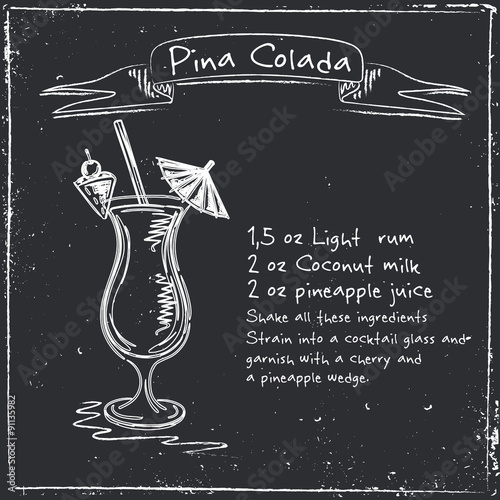 Pina Colada
1,5 oz Light rum
2 oz Coconut milk
2 oz pineapple juice
Shake all these ingredients
Strain into a cocktail glass and
garnish with a cherry and
a pineapple wedge.
Adobe Stock | #91135982